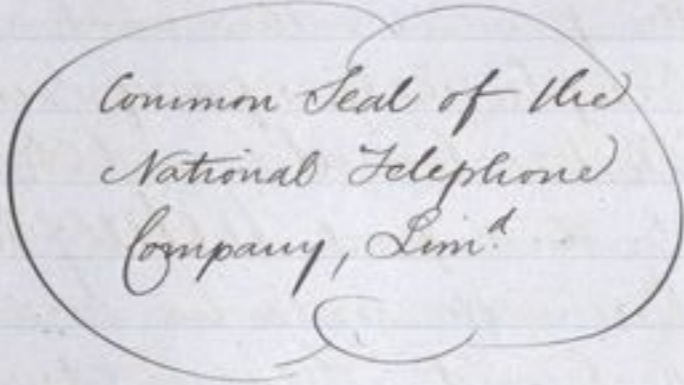 Common Seal of the
National Telephone
Company, Lim.d